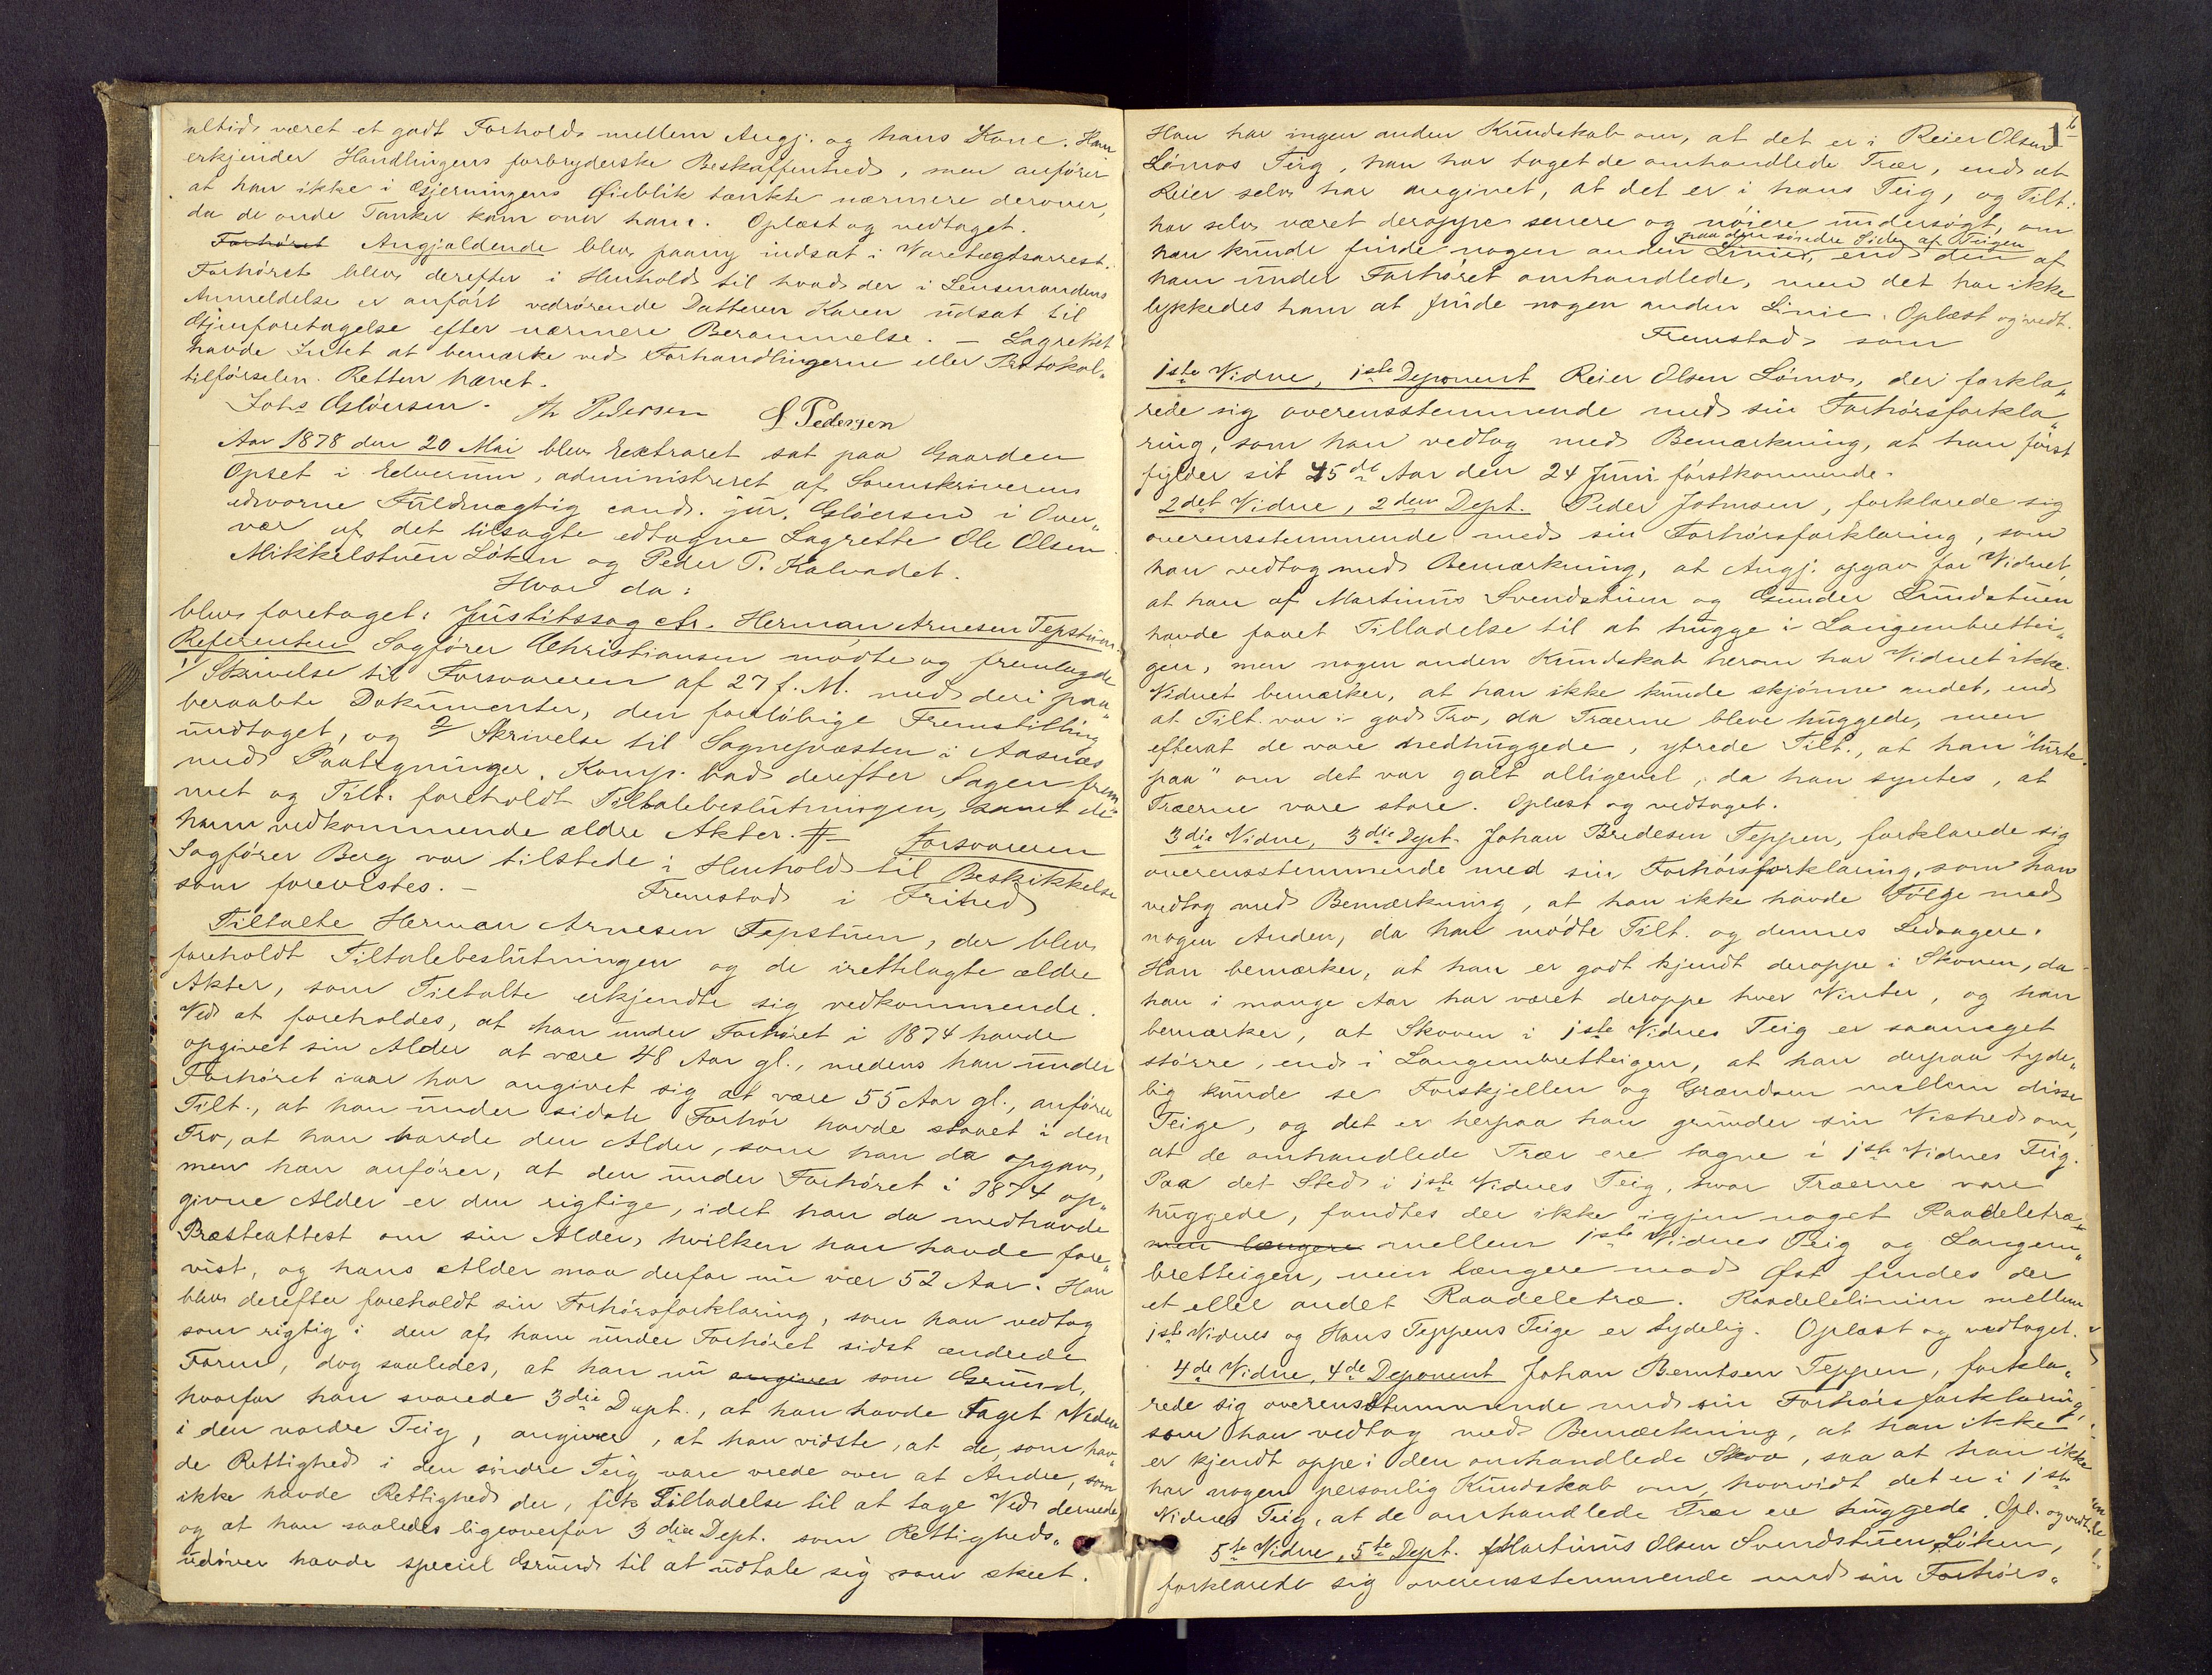 altid været et godt Forhold mellem Angj. og hans Kone. Han
erkjender Handlingens forbryderske Beskaffenhed, men anfører
at han ikke i Gjerningens Øieblik tænkte nærmere derover,
da de onde Tanker kom over ham. Oplæst og vedtaget.
Forhøret Angjældende blev paany indsat i Varetægtsarrest.
Forhøret blev derefter i Henhold til hvad der i Lensmandens
Anmeldelse er anført vedrørende Datteren Karen udsat til
Gjenforetagelse efter nærmere Berammelse. — Lagrettet
havde Intet at bemærke ved Forhandlingerne eller Protokol„
tilførselen. Retten hævet.
Johs Gløersen. Th Pedersen S Pedersen
Aar 1878 den 20 Mai blev Extraret sat paa Gaarden
Opset i Elverum, administreret af Sorenskriverens
edsvorne Fuldmægtig cand. jur. Gløersen i Over„
vær af det tilsagte edtagne Lagrette Ole Olsen
Mikkelstuen Løken og Peder P. Kalvadet.
Hvor da:
blev foretaget: Justitssag ctr. Herman Arnesen Tepstuen.
Referenten Sagfører Christiansen mødte og fremlagde
1/ Skrivelse til Forsvareren af 27 f. M. med deri paa„
beraabte Dokumenter, den foreløbige Fremstilling
undtaget, og 2/ Skrivelse til Sognepræsten i Aasnæs
med Paategninger. Komp. bad derefter Sagen frem„
met og Tilt. foreholdt Tiltalebeslutningen, samt de
ham vedkommende ældre Akter. # Forsvareren
Sagfører Berg var tilstede i Henhold til Beskikkelse
som forevistes. — Fremstod i Frihed
Tiltalte Herman Arnesen Tepstuen, der blev
foreholdt Tiltalebeslutningen og de irettelagte ældre
Akter, som Tiltalte erkjendte sig vedkommende.
Ved at foreholdes, at han under Forhøret i 1874 havde
opgivet sin Alder at være 48 Aar gl., medens han under
Forhøret iaar har angivet sig at være 55 Aar gl., anfører
Tilt., at han under sidste Forhør havde staaet i den
Tro, at han havde den Alder, som han da opgav,
men han anfører, at den under Forhøret i 1874 op„
givne Alder er den rigtige, idet han da medhavde
Præsteattest om sin Alder, hvilken han havde fore„
vist, og hans Alder maa derfor nu vær 52 Aar. Han
blev derefter foreholdt sin Forhørsforklaring, som han vedtog
som rigtig i den af ham under Forhøret sidst ændrede
Form, dog saaledes, at han nu angiver som Grund,
hvorfor han svarede 3die Dept., at han havde taget Veden
i den nordre Teig, angiver, at han vidste, at de, som hav„
de Rettighed i den søndre Teig vare vrede over at Andre, som
ikke havde Rettighed der, fik Tilladelse til at tage Ved dernede
og at han saaledes ligeoverfor 3die Dept. som Rettigheds„
udøver havde speciel Grund til at udtale sig som skeet.
Han har ingen anden Kundskab om, at det er i Reier Olsen
Lømos Teig, han har taget de omhandlede Trær, end at
Reier selv har angivet, at det er i hans Teig, og Tilt.
har selv været deroppe senere og nøiere undersøgt, om
paa den søndre Side af Teigen
han kunde finde nogen anden Linie, end den af
ham under Forhøret omhandlede, men det har ikke
lykkedes ham at finde nogen anden Linie. Oplæst og vedt.
Fremstod som
1ste Vidne, 1ste Deponent Reier Olsen Lømo, der forkla„
rede sig overensstemmende med sin Forhørsforkla„
ring, som han vedtog med Bemærkning, at han først
fylder sit 45de Aar den 24 Juni førstkommende.
2det Vidne, 2den Dept. Peder Johnsen, forklarede sig
overensstemmende med sin Forhørsforklaring, som
han vedtog med Bemærkning, at Angj. opgav for Vidnet,
at han af Martinus Svendstuen og Gunder Lundstuen
havde faaet Tilladelse til at hugge i Langembrettei„
gen, men nogen anden Kundskab herom har Vidnet ikke.
Vidnet bemærker, at han ikke kunde skjønne andet, end
at Tilt. var i god Tro, da Træerne bleve huggede, men
efterat de vare nedhuggede, ytrede Tilt., at han "lurte
paa" om det var galt alligevel, da han syntes, at
Træerne vare store. Oplæst og vedtaget.
3die Vidne, 3die Dept. Johan Bredesen Teppen, forklarede sig
overensstemmende med sin Forhørsforklaring, som han
vedtog med Bemærkning, at han ikke havde Følge med
nogen Anden, da han mødte Tilt. og dennes Ledsagere.
Han bemærker, at han er godt kjendt deroppe i Skoven, da
han i mange Aar har været deroppe hver Vinter, og han
bemærker, at Skoven i 1ste Vidnes Teig er saameget
større, end i Langembretteigen, at han derpaa tyde„
lig kunde se Forskjellen og Grændsen mellem disse
Teige, og det er herpaa han grunder sin Vished om,
at de omhandlede Trær ere tagne i 1ste Vidnes Teig.
Paa det Sted i 1ste Vidnes Teig, hvor Træerne vare
huggede, fandtes der ikke igjen noget Raadeletræ
men længere mellem 1ste Vidnes Teig og Langem„
bretteigen, men længere mod Øst findes der
et eller andet Raadeletræ. Raadelelinien mellem
1ste Vidnes og Hans Teppens Teige er tydelig. Oplæst og vedtaget.
4de Vidne, 4de Deponent Johan Berntsen Teppen, forkla„
rede sig overensstemmende med sin Forhørsforklaring,
som han vedtog med Bemærkning, at han ikke
er kjendt oppe i den omhandlede Skov, saa at han ikke
har nogen personlig Kundskab om, hvorvidt det er i 1ste
Vidnes Teig, at de omhandlede Trær ere huggede. Opl. og vedt.
5te Vidne, 5te Dept. Martinus Olsen Svendstuen Løken,
forklarede sig overensstemmende med sin Forhørs„